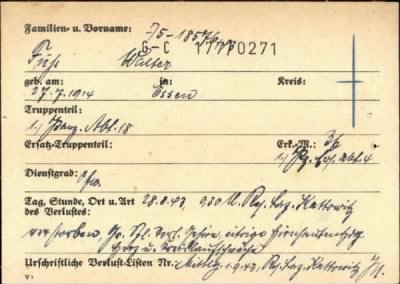 Familien- u. Vorname: 75-18576
G-C 1777/0271
Fuß Walter
geb. am: in: Kreis:
27.7.1914 Essen
Truppenteil:
1./Panz. Abt. 18
Ersatz-Truppenteil: Erk.-M.: 36
1./Pz. Ers. Abt. 4
Dienstgrad: Ufw.
Tag, Stunde, Ort u. Art 28.8.43, 930 U. Res. Laz. Kattowitz
des Verlustes:
verstorben, Gr. Spl. Verl. Gehirn, eitrige Hirnhautentzdg.
Herz u. Kreislaufschwäche
Urschriftliche Verlust-Listen Nr.: Mitlg. 1.9.43, Res. Laz. Kattowitz